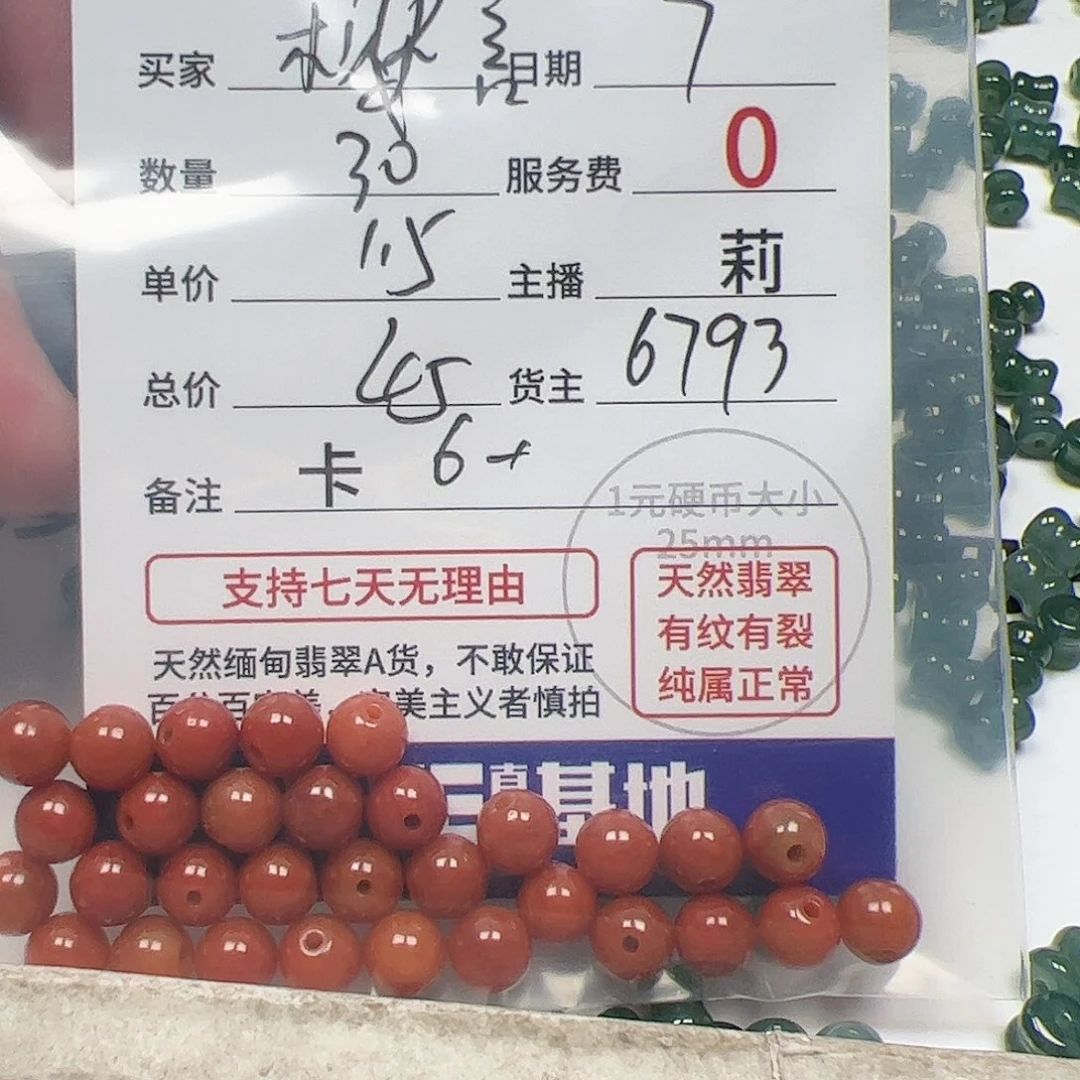 买家 日期 7
数量 30 服务费 0
单价 1.5 主播 莉
总价 45 货主 6793
备注 卡 6+
1元硬币大小
25mm
支持七天无理由
天然翡翠
有纹有裂
纯属正常
天然缅甸翡翠A货，不敢保证
百分百完美，完美主义者慎拍
基地